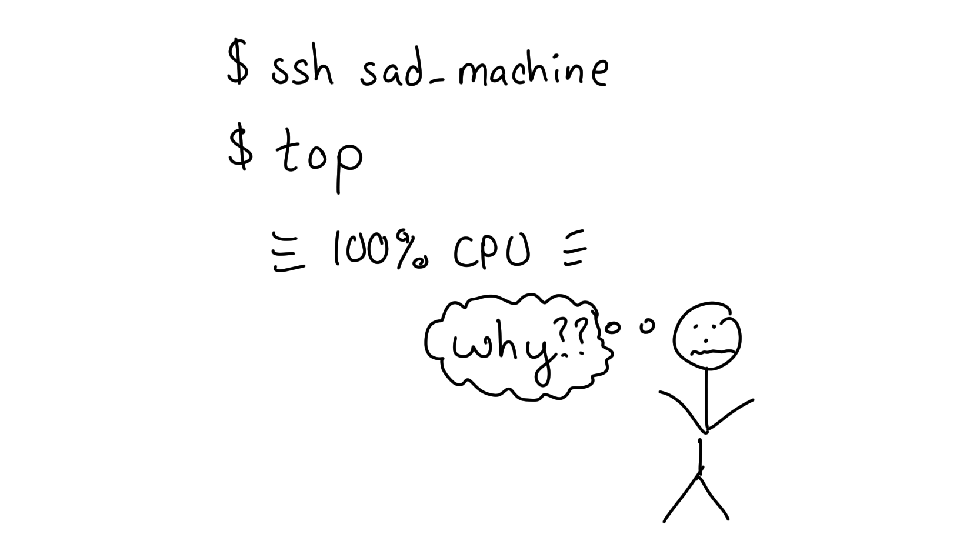 $ ssh sad_machine
$ top
100% CPU
why??